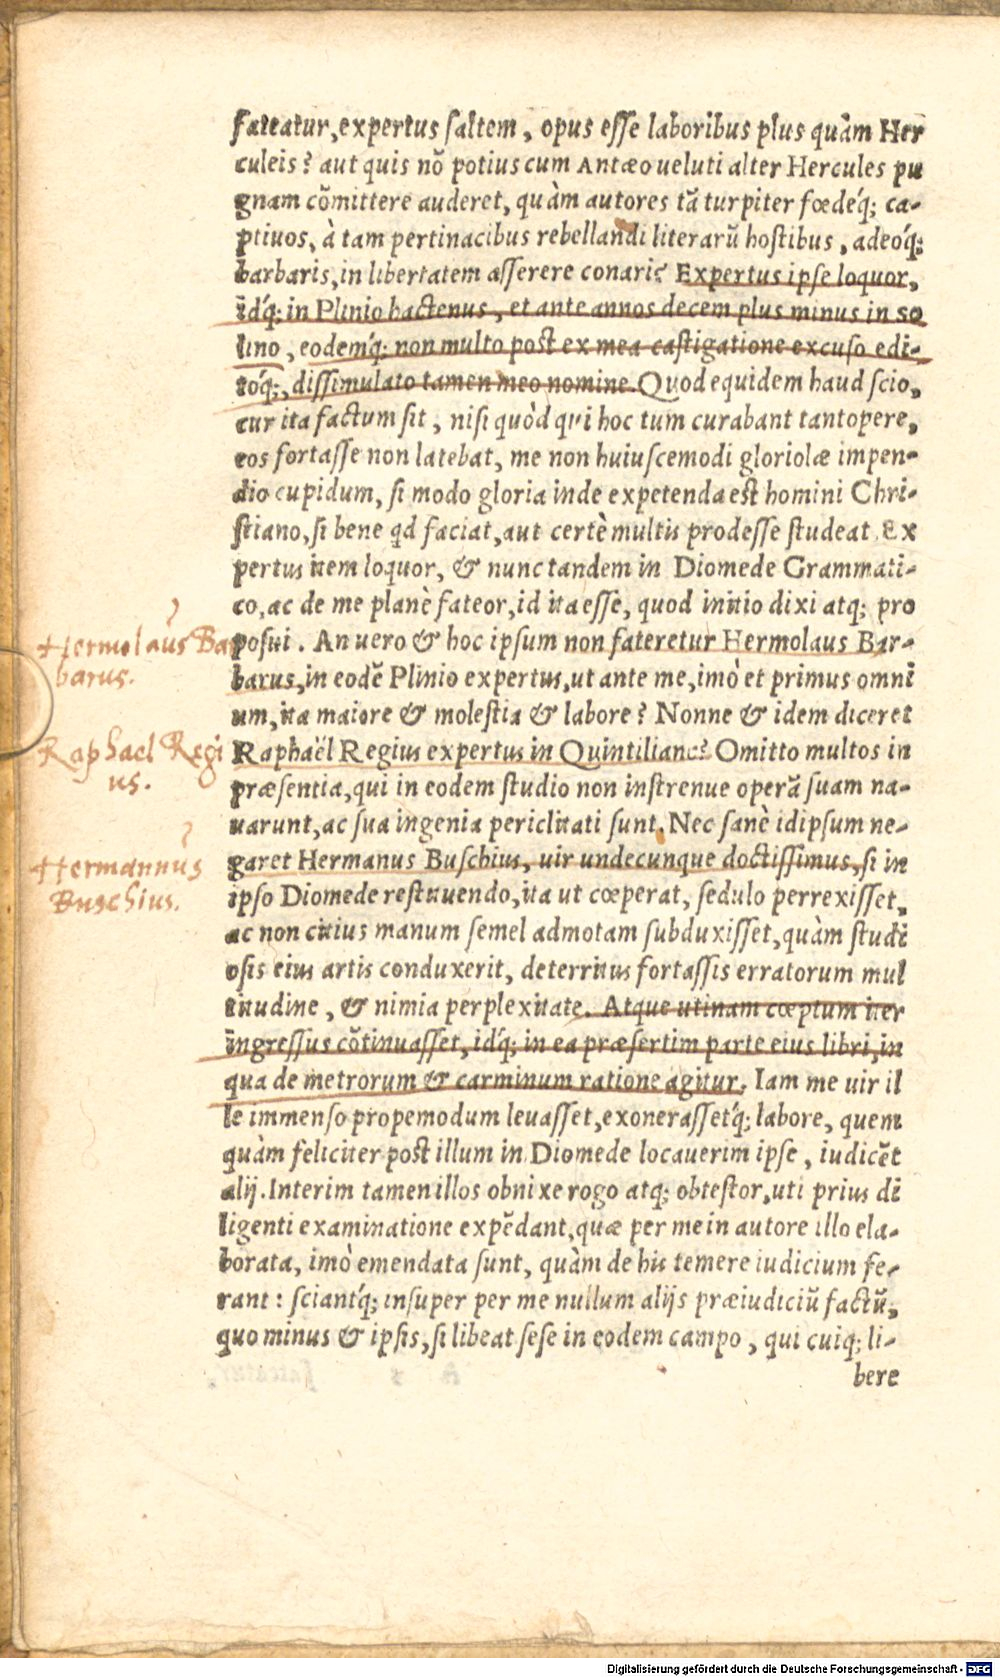 fateatur, expertus saltem, opus esse laboribus plus quàm Her
culeis? aut quis nõ potius cum Antæo ueluti alter Hercules pu
gnam cõmittere auderet, quàm autores tã turpiter fœdéq; ca-
ptiuos, à tam pertinacibus rebellandi literarũ hostibus, adeóq;
barbaris, in libertatem asserere conaris? Expertus ipse loquor,
idq́; in Plinio hactenus, et ante annos decem plus minus in So
lino, eodemq́; non multo post ex mea castigatione excuso edi-
tóq;, dissimulato tamen meo nomine. Quod equidem haud scio,
cur ita factum sit, nisi quòd qui hoc tum curabant tantopere,
eos fortasse non latebat, me non huiuscemodi gloriolæ impen-
dio cupidum, si modo gloria inde expetenda est homini Chri-
stiano, si bene qd faciat, aut certè multis prodesse studeat. Ex
pertus item loquor, & nunc tandem in Diomede Grammati-
co, ac de me planè fateor, id ita esse, quod initio dixi atq; pro
posui. An uero & hoc ipsum non fateretur Hermolaus Bar-
barus, in eodẽ Plinio expertus, ut ante me, imò et primus omni
um, ita maiore & molestia & labore? Nonne & idem diceret
Raphaël Regius expertus in Quintiliano? Omitto multos in
præsentia, qui in eodem studio non instrenue operã suam na-
uarunt, ac sua ingenia periclitati sunt. Nec sanè idipsum ne-
garet Hermanus Buschius, uir undecunque doctissimus, si in
ipso Diomede restituendo, ita ut cœperat, sedulo perrexisset,
ac non citius manum semel admotam subduxisset, quàm studi
osis eius artis conduxerit, deterritus fortassis erratorum mul
titudine, & nimia perplexitate. Atque utinam cœptum iter
ingressus cõtinuasset, idq́; in ea præsertim parte eius libri, in
qua de metrorum & carminum ratione agitur. Iam me uir il
le immenso propemodum leuasset, exonerassetq́; labore, quem
quàm feliciter post illum in Diomede locauerim ipse, iudicẽt
alij. Interim tamen illos obnixe rogo atq; obtestor, uti prius di
ligenti examinatione expẽdant, quæ per me in autore illo ela-
borata, imò emendata sunt, quàm de his temere iudicium fe-
rant: sciantq́; insuper per me nullum alijs præiudiciũ factũ,
quo minus & ipsis, si libeat sese in eodem campo, qui cuiq; li-
bere
Hermolaus Ba
barus.
Raphael Regi
us.
Hermannus
Buschius.
Digitalisierung gefördert durch die Deutsche Forschungsgemeinschaft - DFG